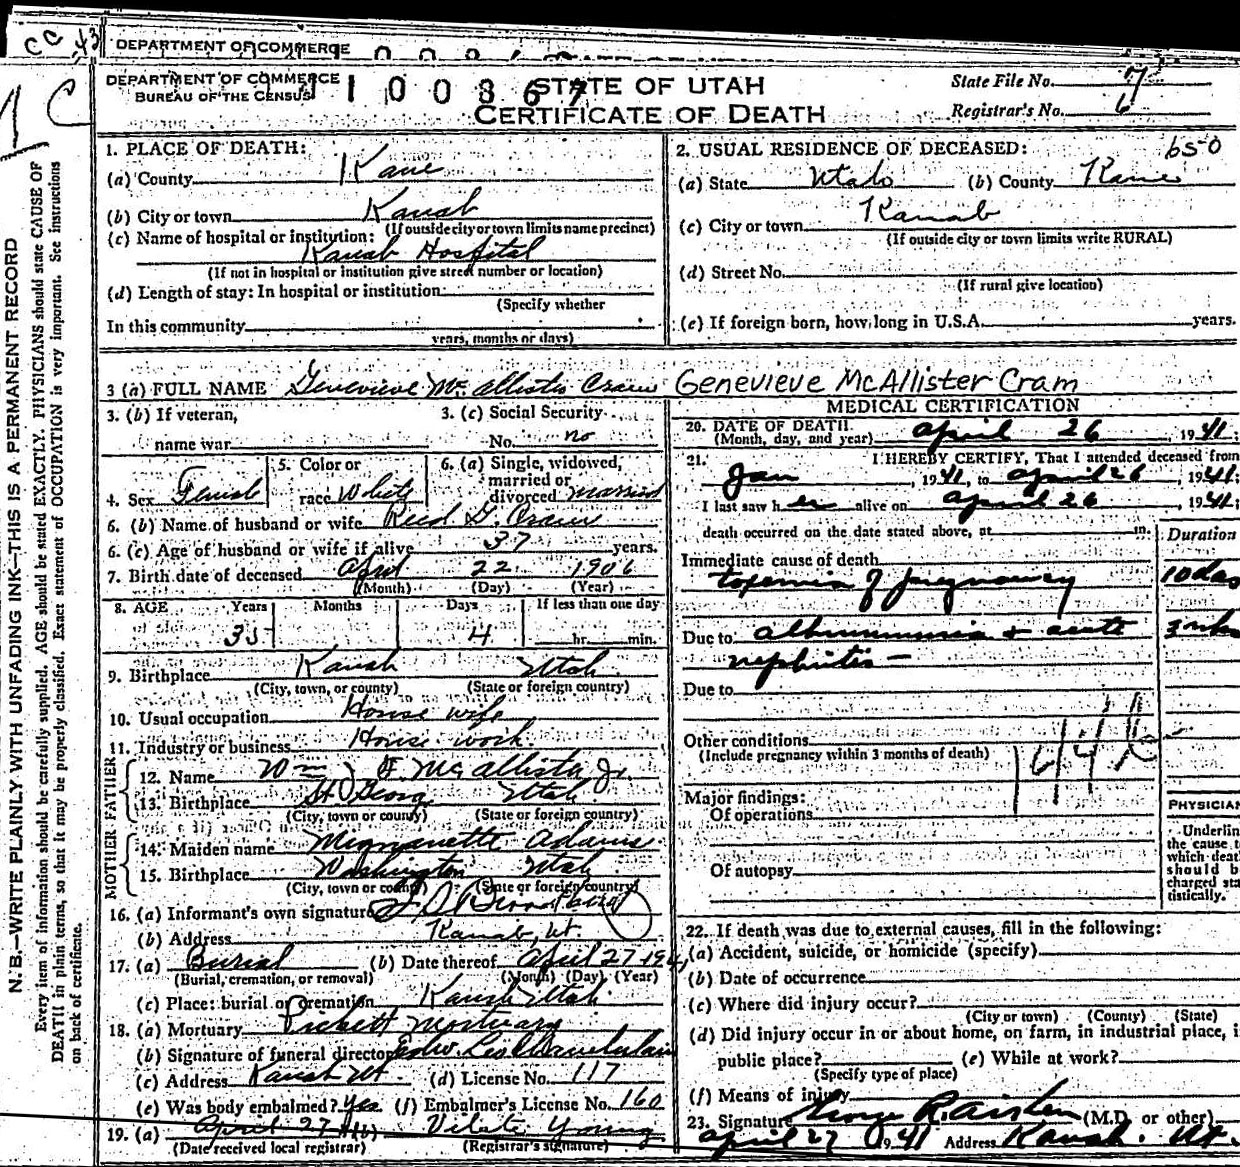 CC 43
DEPARTMENT OF COMMERCE
DEPARTMENT OF COMMERCE
BUREAU OF THE CENSUS
STATE OF UTAH
CERTIFICATE OF DEATH
State File No. 7
Registrar's No. 6
1 C
N. B.—WRITE PLAINLY WITH UNFADING INK—THIS IS A PERMANENT RECORD
Every item of information should be carefully supplied. AGE should be stated EXACTLY. PHYSICIANS should state CAUSE OF
DEATH in plain terms, so that it may be properly classified. Exact statement of OCCUPATION is very important. See instructions
on back of certificate.
1. PLACE OF DEATH:
(a) County Kane
(b) City or town Kanab
(If outside city or town limits name precinct)
(c) Name of hospital or institution:
Kanab Hospital
(If not in hospital or institution give street number or location)
(d) Length of stay: In hospital or institution
(Specify whether
In this community
years, months or days)
2. USUAL RESIDENCE OF DECEASED: 650
(a) State Utah (b) County Kane
(c) City or town Kanab
(If outside city or town limits write RURAL)
(d) Street No.
(If rural give location)
(e) If foreign born, how long in U.S.A. years.
3 (a) FULL NAME Genevieve McAllister Cram Genevieve McAllister Cram
3. (b) If veteran,
name war
3. (c) Social Security
No. no
4. Sex Female
5. Color or
race White
6. (a) Single, widowed,
married or
divorced married
6. (b) Name of husband or wife Reed G. Cram
6. (c) Age of husband or wife if alive 37 years.
7. Birth date of deceased April 22 1906
(Month) (Day) (Year)
8. AGE Years Months Days If less than one day
35 4 hr. min.
9. Birthplace Kanab Utah
(City, town, or county) (State or foreign country)
10. Usual occupation House wife
11. Industry or business House work
FATHER
12. Name Wm J. F. McAllister Jr.
13. Birthplace St George Utah
(City, town or county) (State or foreign country)
MOTHER
14. Maiden name Mignonette Adams
15. Birthplace Washington Utah
(City, town or county) (State or foreign country)
16. (a) Informant's own signature
(b) Address Kanab, Ut.
17. (a) Burial (b) Date thereof April 27 194
(Burial, cremation, or removal) (Month) (Day) (Year)
(c) Place: burial or cremation Kanab Utah
18. (a) Mortuary Pickett Mortuary
(b) Signature of funeral director Chamberlain
(c) Address Kanab Ut. (d) License No. 117
(e) Was body embalmed? Yes (f) Embalmer's License No. 160
19. (a) April 27 (b) Vilate Young
(Date received local registrar) (Registrar's signature)
MEDICAL CERTIFICATION
20. DATE OF DEATH
(Month, day, and year) April 26, 1941;
21. I HEREBY CERTIFY, That I attended deceased from
Jan, 1941, to april 26, 1941;
I last saw her alive on april 26, 1941;
death occurred on the date stated above, at m.
Duration
Immediate cause of death
toxemia of pregnancy 10 das
Due to albuminuria + acute 3 wks
nephritis —
Due to
Other conditions
(Include pregnancy within 3 months of death)
Major findings:
Of operations
Of autopsy
PHYSICIAN
Underlin
the cause t
which deat
should b
charged sta
tistically.
22. If death was due to external causes, fill in the following:
(a) Accident, suicide, or homicide (specify)
(b) Date of occurrence
(c) Where did injury occur?
(City or town) (County) (State)
(d) Did injury occur in or about home, on farm, in industrial place, i
public place? (e) While at work?
(Specify type of place)
(f) Means of injury
23. Signature George R. Aiken (M.D. or other)
april 27 1941 Address Kanab. Ut.